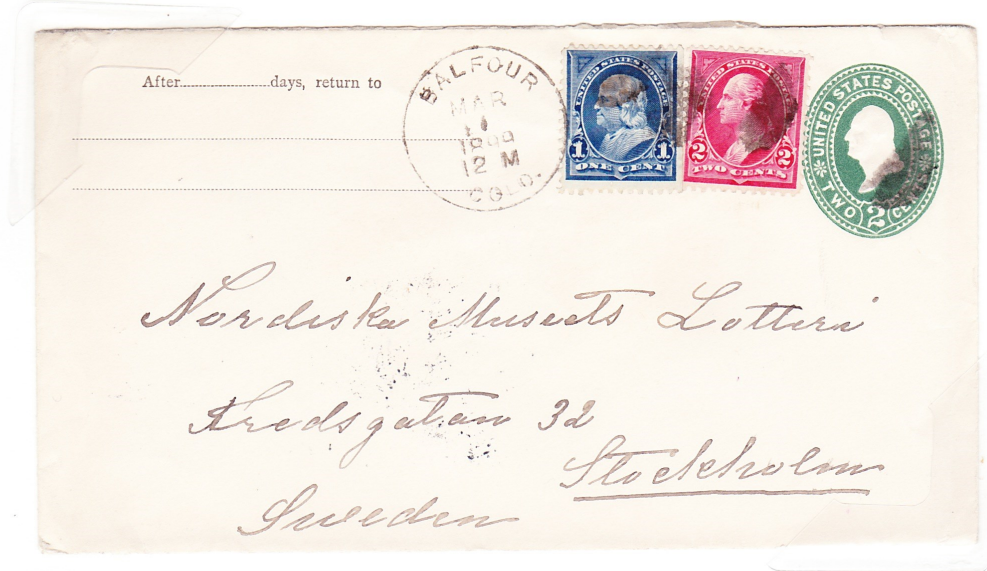 After..............days, return to
BALFOUR
MAR
1
12 M
COLO.
UNITED STATES POSTAGE
1 1
ONE CENT
UNITED STATES POSTAGE
2 2
TWO CENTS
UNITED STATES POSTAGE
TWO 2
Nordiska Museets Lotteri
Fredsgatan 32
Stockholm
Sweden